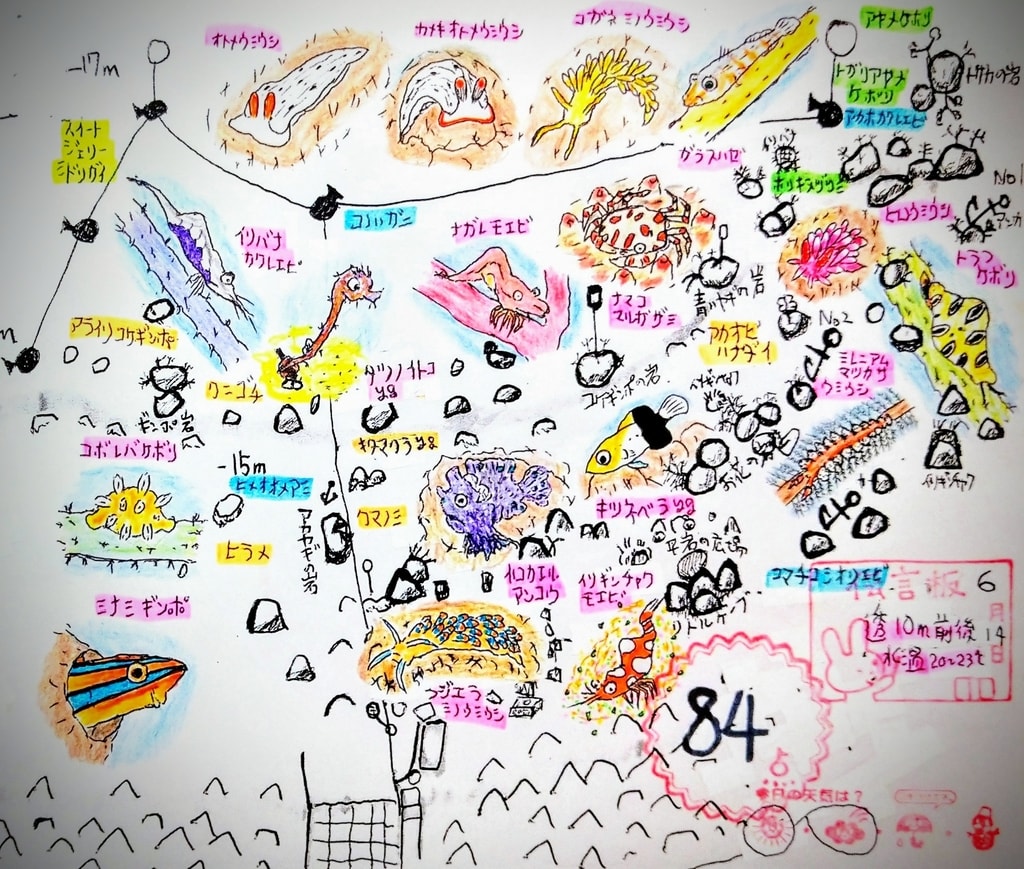 オトメウミウシ
カメキオトメウミウシ
コガネミノウミウシ
アヤメケボリ
-17m
トガリアヤメ
ケボリ
アカホシカクレエビ
トサカの岩
スイート
ジェリー
ミドリガイ
ガラスハゼ
イソバナ
No1
アンカ
コノハガニ
ヒロウミウシ
イソバナ
カクレエビ
ナガレモエビ
トラフ
ケボリ
ナマコ
マルガザミ
青ヤギの岩
アライソコケギンポ
アカオビ
ハナダイ
No2
ミレニアム
マツカサ
ウミウシ
クニゴチ
タツノイトコ
yg
コケギンポの岩
ギンポ岩
コボレバケボリ
キタマクラyg
-15m
ヒメオオメアミ
クマノミ
アカヤギの岩
キツネベラyg
ヒラメ
ミナミギンポ
イロカエル
アンコウ
イソギンチャク
モエビ
コマチコシオリエビ
伝言板
6
月
14
日
透10m前後
水温20~23℃
フジエラ
ミノウミウシ
84
点
今日の天気は?